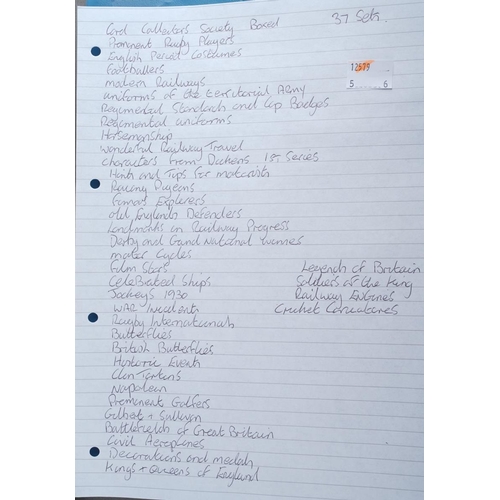 Card Collectors Society Boxed 37 Sets.
Prominent Rugby Players
English Period Costumes
Footballers
12575
modern Railways
5 6
uniforms of the territorial Army
Regimental Standards and Cap Badges
Regimental uniforms
Horsemanship
wonderful Railway Travel
Characters from Dickens 1st Series
Hints and Tips for motorists
Racing Pigeons
Famous Explorers
old Englands Defenders
Landmarks in Railway Progress
Derby and Grand National winners
motor Cycles
Film Stars
Legends of Britain
CeleBrated Ships
Soldiers of the King
Jockeys 1930
Railway Engines
WAR Incidents
Cricket Caricatures
Rugby Internationals
Butterflies
British Butterflies
Historic Events
Clan Tartans
Napoleon
Prominent Golfers
Gilbert + Sullivan
Battlefields of Great Britain
Civil Aeroplanes
Decorations and medals
Kings + Queens of England